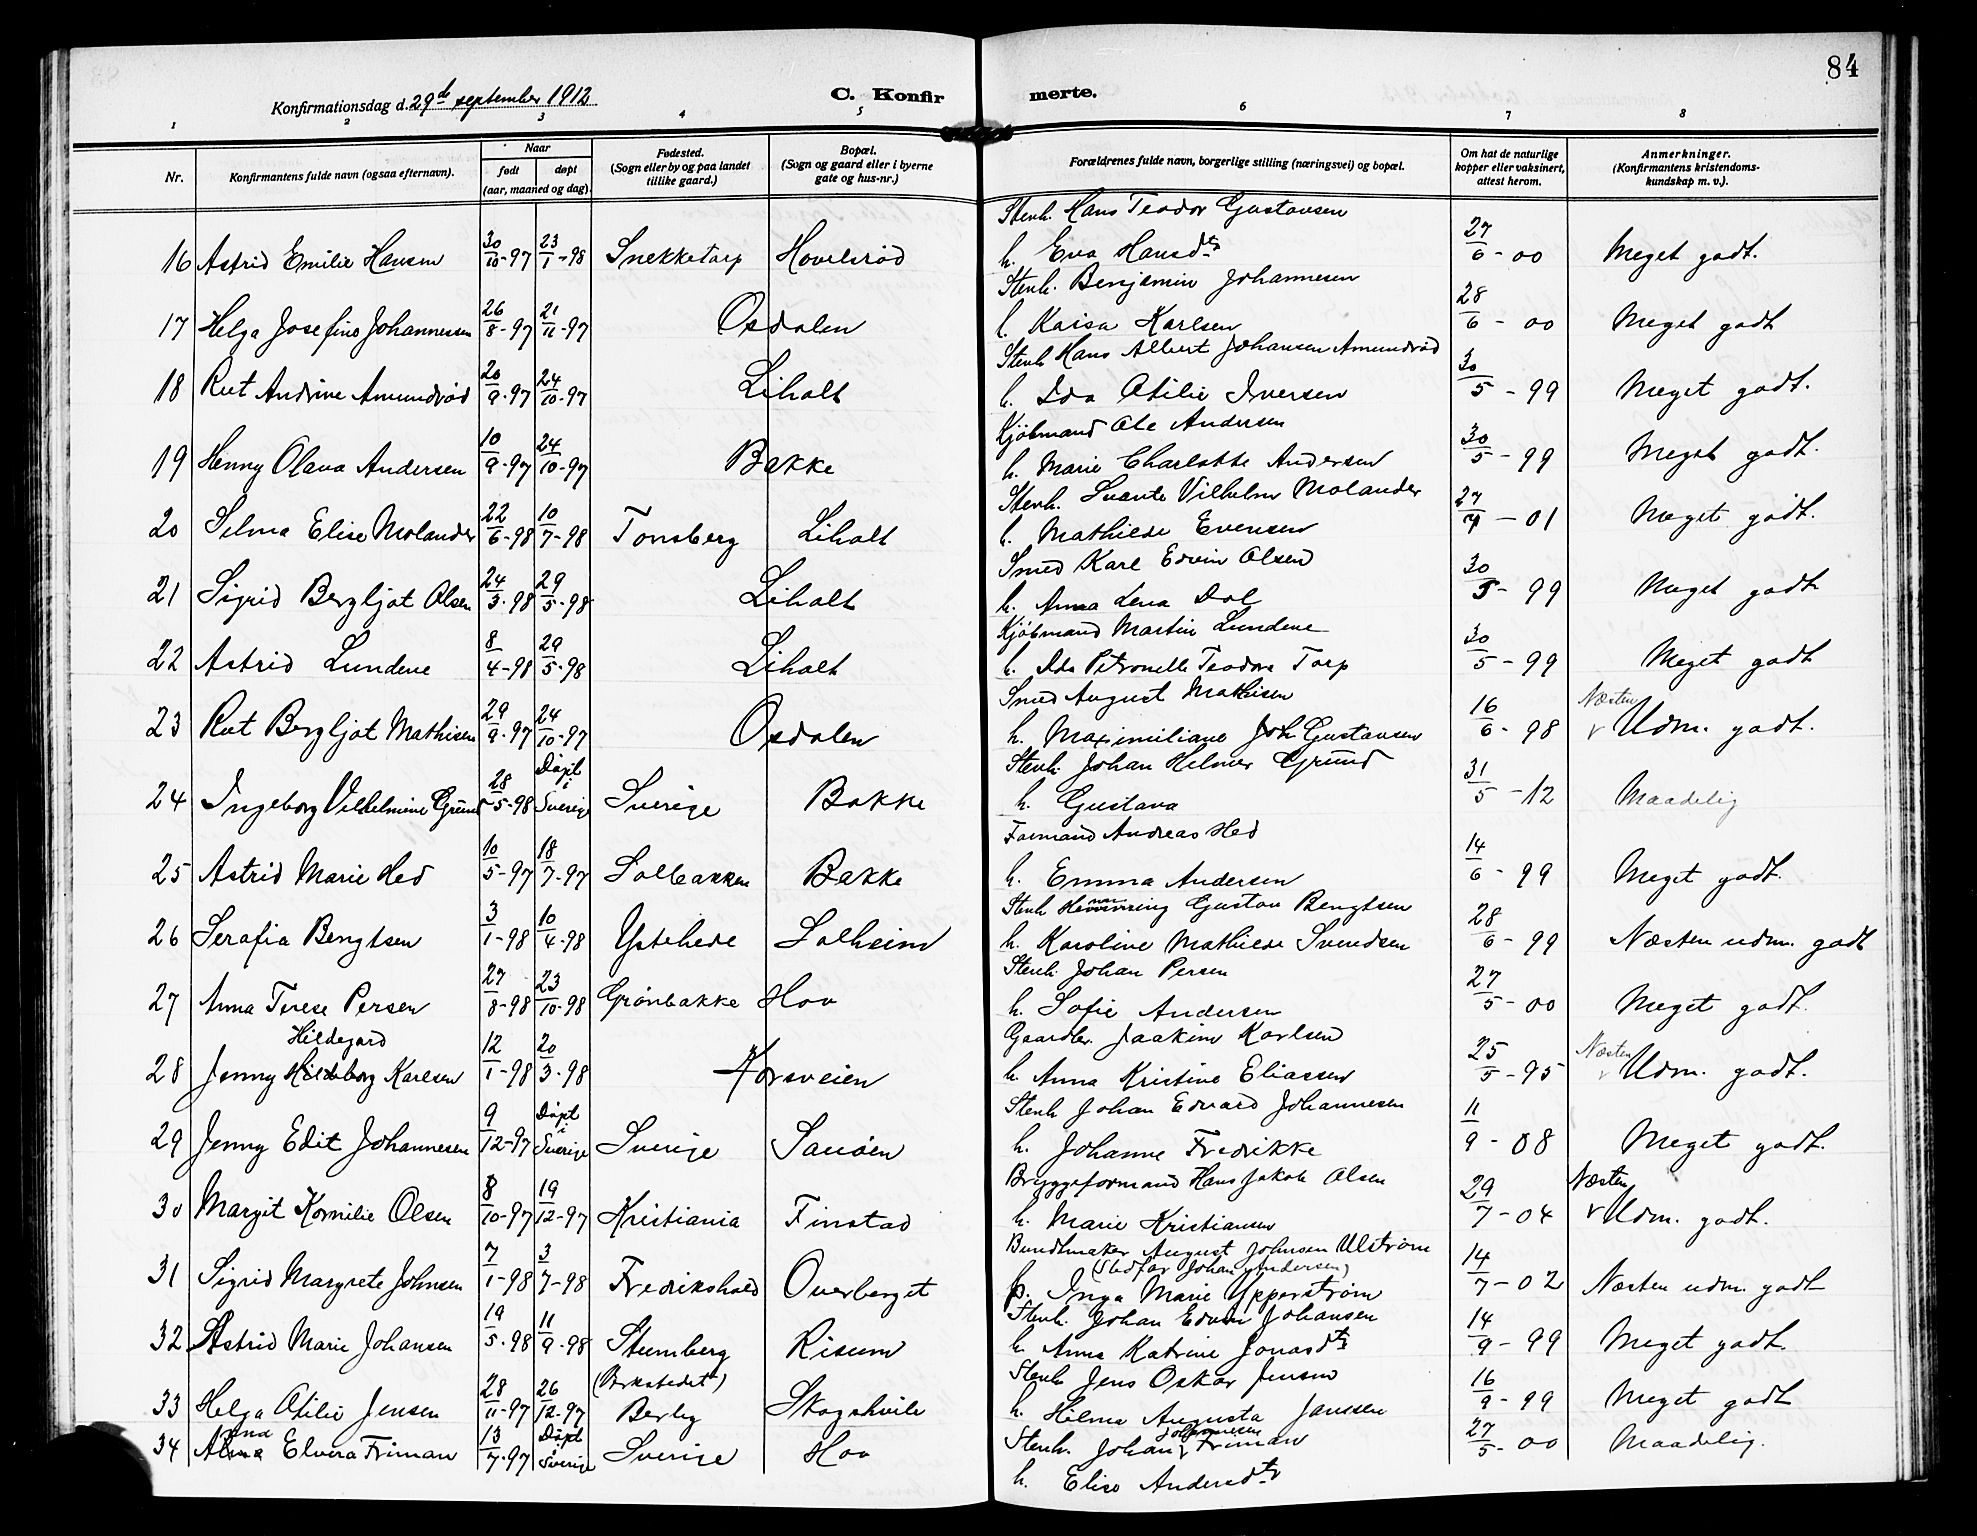 84
Konfirmationsdag d. 29de september 1912
C. Konfirmerte.
1 2 3 4 5 6 7 8
Nr.
Konfirmantens fulde navn (ogsaa efternavn).
Naar
født døpt
(aar, maaned og dag).
Fødested.
(Sogn eller by og paa landet
tillike gaard.)
Bopæl.
(Sogn og gaard eller i byerne
gate og hus-nr.)
Forældrenes fulde navn, borgerlige stilling (næringsvei) og bopæl.
Om hat de naturlige
kopper eller vaksinert,
attest herom.
Anmerkninger.
(Konfirmantens kristendoms-
kundskap m. v.).
Stenh. Hans Teodor Gustavsen
16 Astrid Emilie Hansen 30/10-97 23/1-98 Snekketorp Hovelsrød h. Eva Hansdtr 27/6-00 Meget godt.
Stenh. Benjamin Johannesen
17 Helga Josefine Johannessen 26/8-97 21/11-97 Osdalen h. Kaisa Karlsen 28/6-00 Meget godt
Stenh Hans Albert Johansen Amundrød
18 Rut Andrine Amundrød 20/9-97 24/10-97 Liholt h. Ida Otilie Iversen 30/5-99 Meget godt.
Kjøbmand Ole Andersen
19 Henny Olava Andersen 10/9-97 24/10-97 Bakke h. Marie Charlotte Andersen 30/5-99 Meget godt.
Stenh. Svante Vilhelm Molander
20 Selma Elise Molander 22/6-98 10/7-98 Tonsberg Liholt h. Mathilde Evensen 27/4-01 Meget godt.
Smed Karl Edvin Olsen
21 Sigrid Bergljot Olsen 24/3-98 29/5-98 Liholt h. Anna Lena Dal 30/5-99 Meget godt
Kjøbmand Martin Lundene
22 Astrid Lundene 8/4-98 29/5-98 Liholt h. Ida Petronelle Teodora Torp 30/5-99 Meget godt
Smed August Mathisen
23 Rut Bergljot Mathisen 29/9-97 24/10-97 Osdalen h. Maximiliane Joh. Gustavsen 16/6-98 Næsten Udm. godt.
Stenh. Johan Helmer Gründ
24 Ingeborg Vilhelmine Gründ 28/5-98 Døpt i Sverige Sverige Bakke h. Gustava 31/5-12 Maadelig
Formand Andreas Hed
25 Astrid Marie Hed 10/5-97 18/7-97 Solbakken Bakke h. Emma Andersen 14/6-99 Meget godt.
Stenh Henning Gustav Bengtsen
26 Serafia Bengtsen 3/1-98 10/4-98 Ystehede Solheim h. Karoline Mathilde Svendsen 28/6-99 Næsten udm. godt
Stenh. Johan Persen
27 Anna Terese Persen 27/8-98 23/10-98 Grønbakke Hov h. Sofie Andersen 27/5-00 Meget godt.
Gaardbr. Joakim Karlsen
Hildegard
28 Jenny Hildeborg Karlsen 12/1-98 20/3-98 Torsveien h. Anna Kristine Eliassen 25/5-95 Næsten Udm. godt.
Stenh Johan Edvard Johannesen
29 Jenny Edit Johannesen 9/12-97 Døpt i Sverige Sverige Sanøen h. Johanne Fredrikke 11/9-08 Meget godt.
Bryggeformand Hans Jakob Olsen
30 Margit Kornilie Olsen 8/10-97 19/12-97 Kristiania Finstad h. Marie Kristiansen 29/7-04 Næsten Udm. godt.
Bundtmaker August Johnsen Ulstrøm
(Stedfar Johan Andersen)
31 Sigrid Margrete Johnsen 7/1-98 3/7-98 Fredrikshald Overberget h. Inga Marie Ypperstrøm 14/7-02 Næsten udm. godt
Stenh. Johan Edvin Johansen
32 Astrid Marie Johansen 19/5-98 11/9-98 Stumberg Risum h. Anna Katrine Jonasdtr 14/9-99 Meget godt.
Stenh Jens Oskar Jensen
33 Helga Otilie Jensen 28/11-97 26/12-97 Berby Skogshvile h. Hilma Augusta Janssen 16/9-99 Meget godt
Johannesen
34 Alma Elvera Friman 13/7-97 Døpt Sverige Sverige Hov Stenh. Johan Friman 27/5-00 Maadelig.
h. Elise Andersdtr